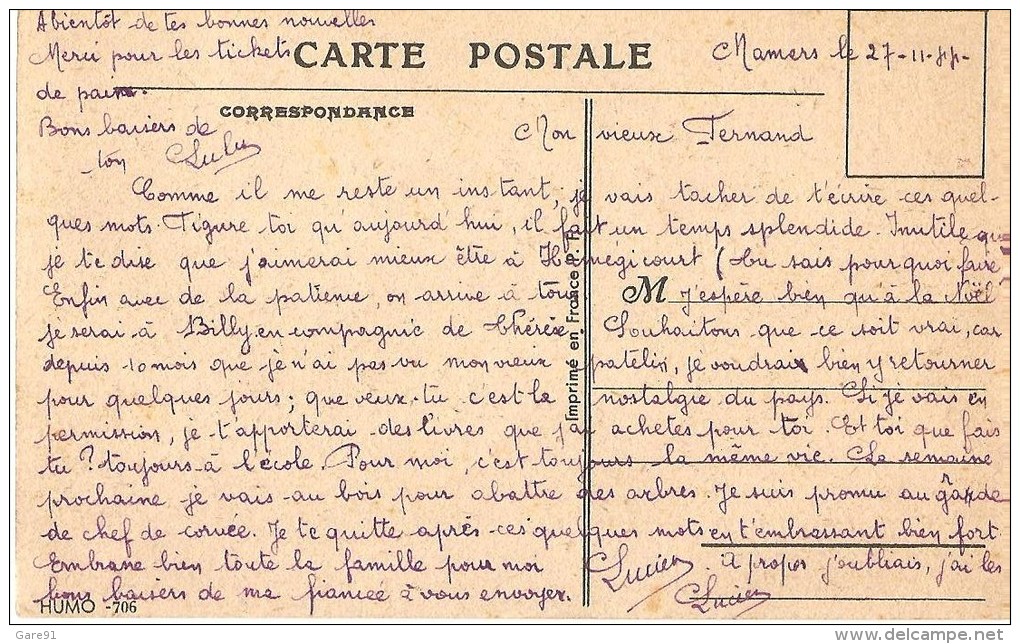 A bientôt de tes bonnes nouvelles
Merci pour les tickets
de pain.
Bons baisers de
ton Lulu
CARTE POSTALE
CORRESPONDANCE
Mamers le 27-11-44-
Mon vieux Fernand
Comme il me reste un instant, je vais tacher de t'écrire ces quel-
ques mots. Figure toi qu'aujourd'hui, il fait un temps splendide. Inutile que
je te dise que j'aimerai mieux être à Hamégicourt (tu sais pourquoi faire
Enfin avec de la patience, on arrive à tout M J'espère bien qu'à la Noël
je serai à Billy en compagnie de Thérèse. Souhaitons que ce soit vrai, car
depuis 10 mois que je n'ai pas vu mon vieux patelin, je voudrais bien y retourner
pour quelques jours; que veux-tu c'est la nostalgie du pays. Si je vais en
permission, je t'apporterai des livres que j'ai achetes pour toi. Et toi que fais
tu? toujours à l'école. Pour moi, c'est toujours la même vie. La semaine
prochaine je vais au bois pour abattre des arbres. Je suis promu au grade
de chef de corvée. Je te quitte après ces quelques mots en t'embrassant bien fort.
Embrasse bien toute la famille pour moi Lucien. A propos j'oubliais, j'ai les
bons baisers de ma fiancée à vous envoyer. Lucien
Imprimé en France P. R.
HUMO -706
Gare91
www.delcampe.net